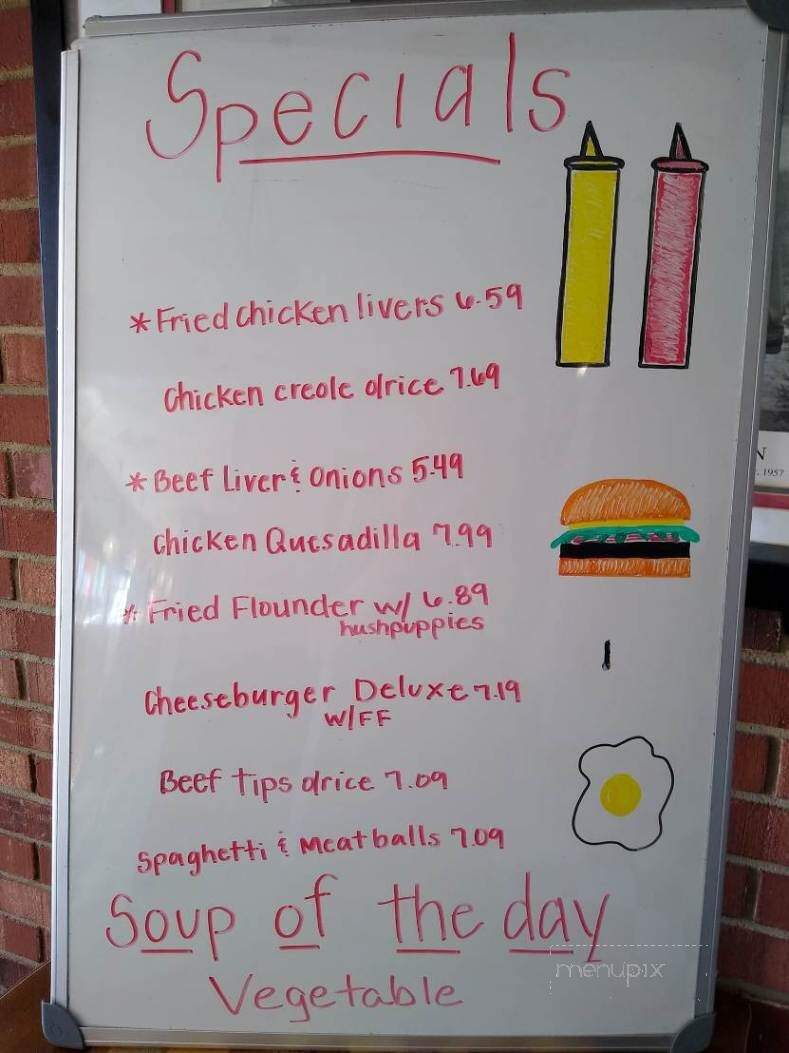 Specials
*Fried chicken livers 6.59
Chicken creole o/rice 7.69
*Beef Liver & Onions 5.49
Chicken Quesadilla 7.99
*Fried Flounder w/ 6.89
hushpuppies
Cheeseburger Deluxe 7.19
W/FF
Beef tips o/rice 7.09
Spaghetti & Meatballs 7.09
Soup of the day
Vegetable
menupix
N
. 1957